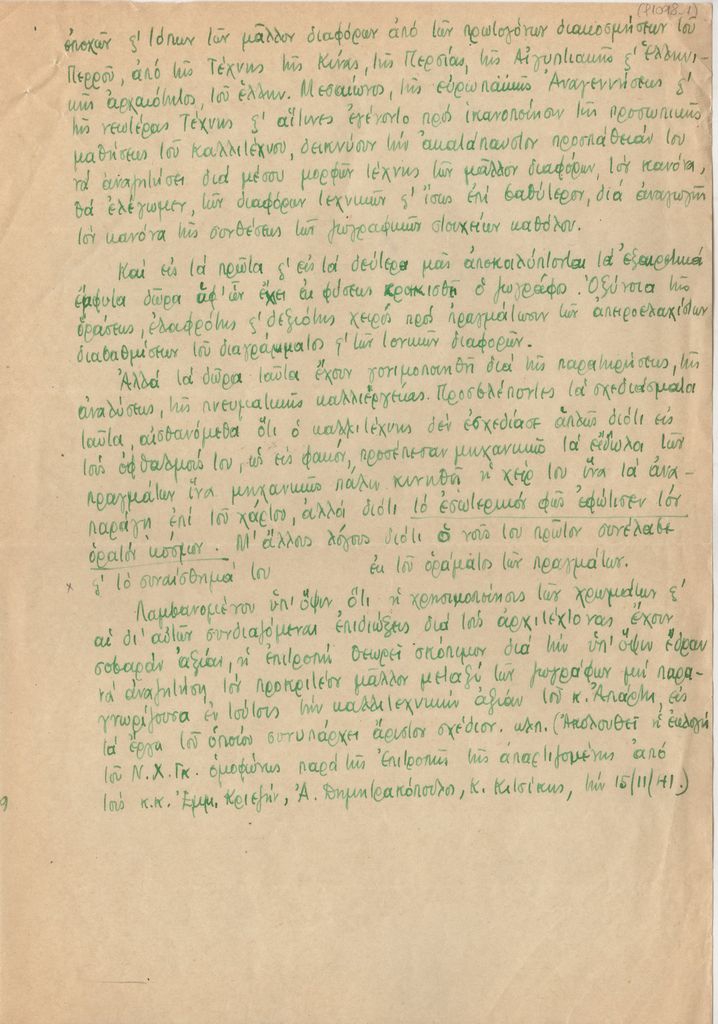 (f1098-1)
ἐποχῶν ϗ' τόπων τῶν μᾶλλον διαφόρων ἀπό τῶν πρωτογόνων διακοσμήσεων τοῦ
Περροῦ, ἀπό τῆς Τέχνης τῆς Κίνας, τῆς Περσίας, τῆς Αἰγυπτιακῆς ϗ' ἑλλην-
ικῆς ἀρχαιότητος, τοῦ ἑλλην. Μεσαίωνος, τῆς εὐρωπαϊκῆς Ἀναγεννήσεως ϗ'
τῆς νεωτέρας Τέχνης ϗ' αἵτινες ἐγένοντο πρός ἱκανοποίησιν τῆς προσωπικῆς
μαθήσεως τοῦ καλλιτέχνου, δεικνύουν τήν ἀκατάπαυστον προσπάθειάν του
νά ἀναζητήσει διά μέσου μορφῶν τέχνης τῶν μᾶλλον διαφόρων, τόν κανόνα,
θά ἐλέγωμεν, τῶν διαφόρων τεχνικῶν ϗ' ἴσως ἐπί βαθύτερον, διά ἀναγωγῆς
τόν κανόνα τῆς συνθέσεως τῶν ζωγραφικῶν στοιχείων καθόλου.
Καί εἰς τά πρῶτα ϗ' εἰς τά δεύτερα μᾶς ἀποκαλύπτονται τά ἐξαιρετικά
ἔμφυτα δῶρα ἀφ' ὧν ἔχει ἐκ φύσεως προικισθῆ ὁ ζωγράφος. Ὀξύνοια τῆς
ὁράσεως, ἐλαφρότης ϗ' δεξιότης χειρός πρός πραγμάτωσιν τῶν ἀπειροελαχίστων
διαβαθμίσεων τοῦ διαγράμματος ϗ' τῶν τονικῶν διαφορῶν.
Ἀλλά τά δῶρα ταῦτα ἔχουν γονιμοποιηθῆ διά τῆς παρατηρήσεως, τῆς
ἀναλύσεως, τῆς πνευματικῆς καλλιεργείας. Προσβλέποντες τά σχεδιάσματα
ταῦτα, αἰσθανόμεθα ὅτι ὁ καλλιτέχνης δέν ἐσχεδίασε ἁπλῶς διότι εἰς
τούς ὀφθαλμούς του, ὡς εἰς φακόν, προσέπεσαν μηχανικῶς τά εἴδωλα τῶν
πραγμάτων ἵνα μηχανικῶς πάλιν κινηθῆ ἡ χείρ του ἵνα τά ἀνα-
παράγη ἐπί τοῦ χάρτου, ἀλλά διότι τό ἐσωτερικόν φῶς ἐφώτισεν τόν
ὁρατόν κόσμον. Μ' ἄλλους λόγους διότι ὁ νοῦς του πρῶτον συνέλαβε
x ϗ' τό συναίσθημά του ἐκ τοῦ ὁράματος τῶν πραγμάτων.
Λαμβανομένου ὑπ' ὄψιν ὅτι ἡ χρησιμοποίησις τῶν χρωμάτων ϗ'
αἱ δι' αὐτῶν συνδιαζόμεναι ἐπιδιώξεις διά τούς ἀρχιτέκτονας ἔχουν
σοβαράν ἀξίαν, ἡ ἐπιτροπή θεωρεῖ σκόπιμον διά τήν ὑπ' ὄψιν ἕδραν
νά ἀναζητήση τόν προκριτέον μᾶλλον μεταξύ τῶν ζωγράφων μή παρα-
γνωρίζουσα ἐν τούτοις τήν καλλιτεχνικήν ἀξίαν τοῦ κ. Ἀπάρτη, εἰς
τά ἔργα τοῦ ὁποίου συνυπάρχει ἄριστον σχέδιον. κλπ. (Ἀκολουθεῖ ἡ ἐκλογή
τοῦ Ν. Χ. Γκ. ὁμοφώνως παρά τῆς ἐπιτροπῆς τῆς ἀπαρτιζομένης ἀπό
τούς κ.κ. Ἐμμ. Κριεζῆν, Ἀ. Δημητρακόπουλος, Κ. Κιτσίκης, τήν 15/11/41.)